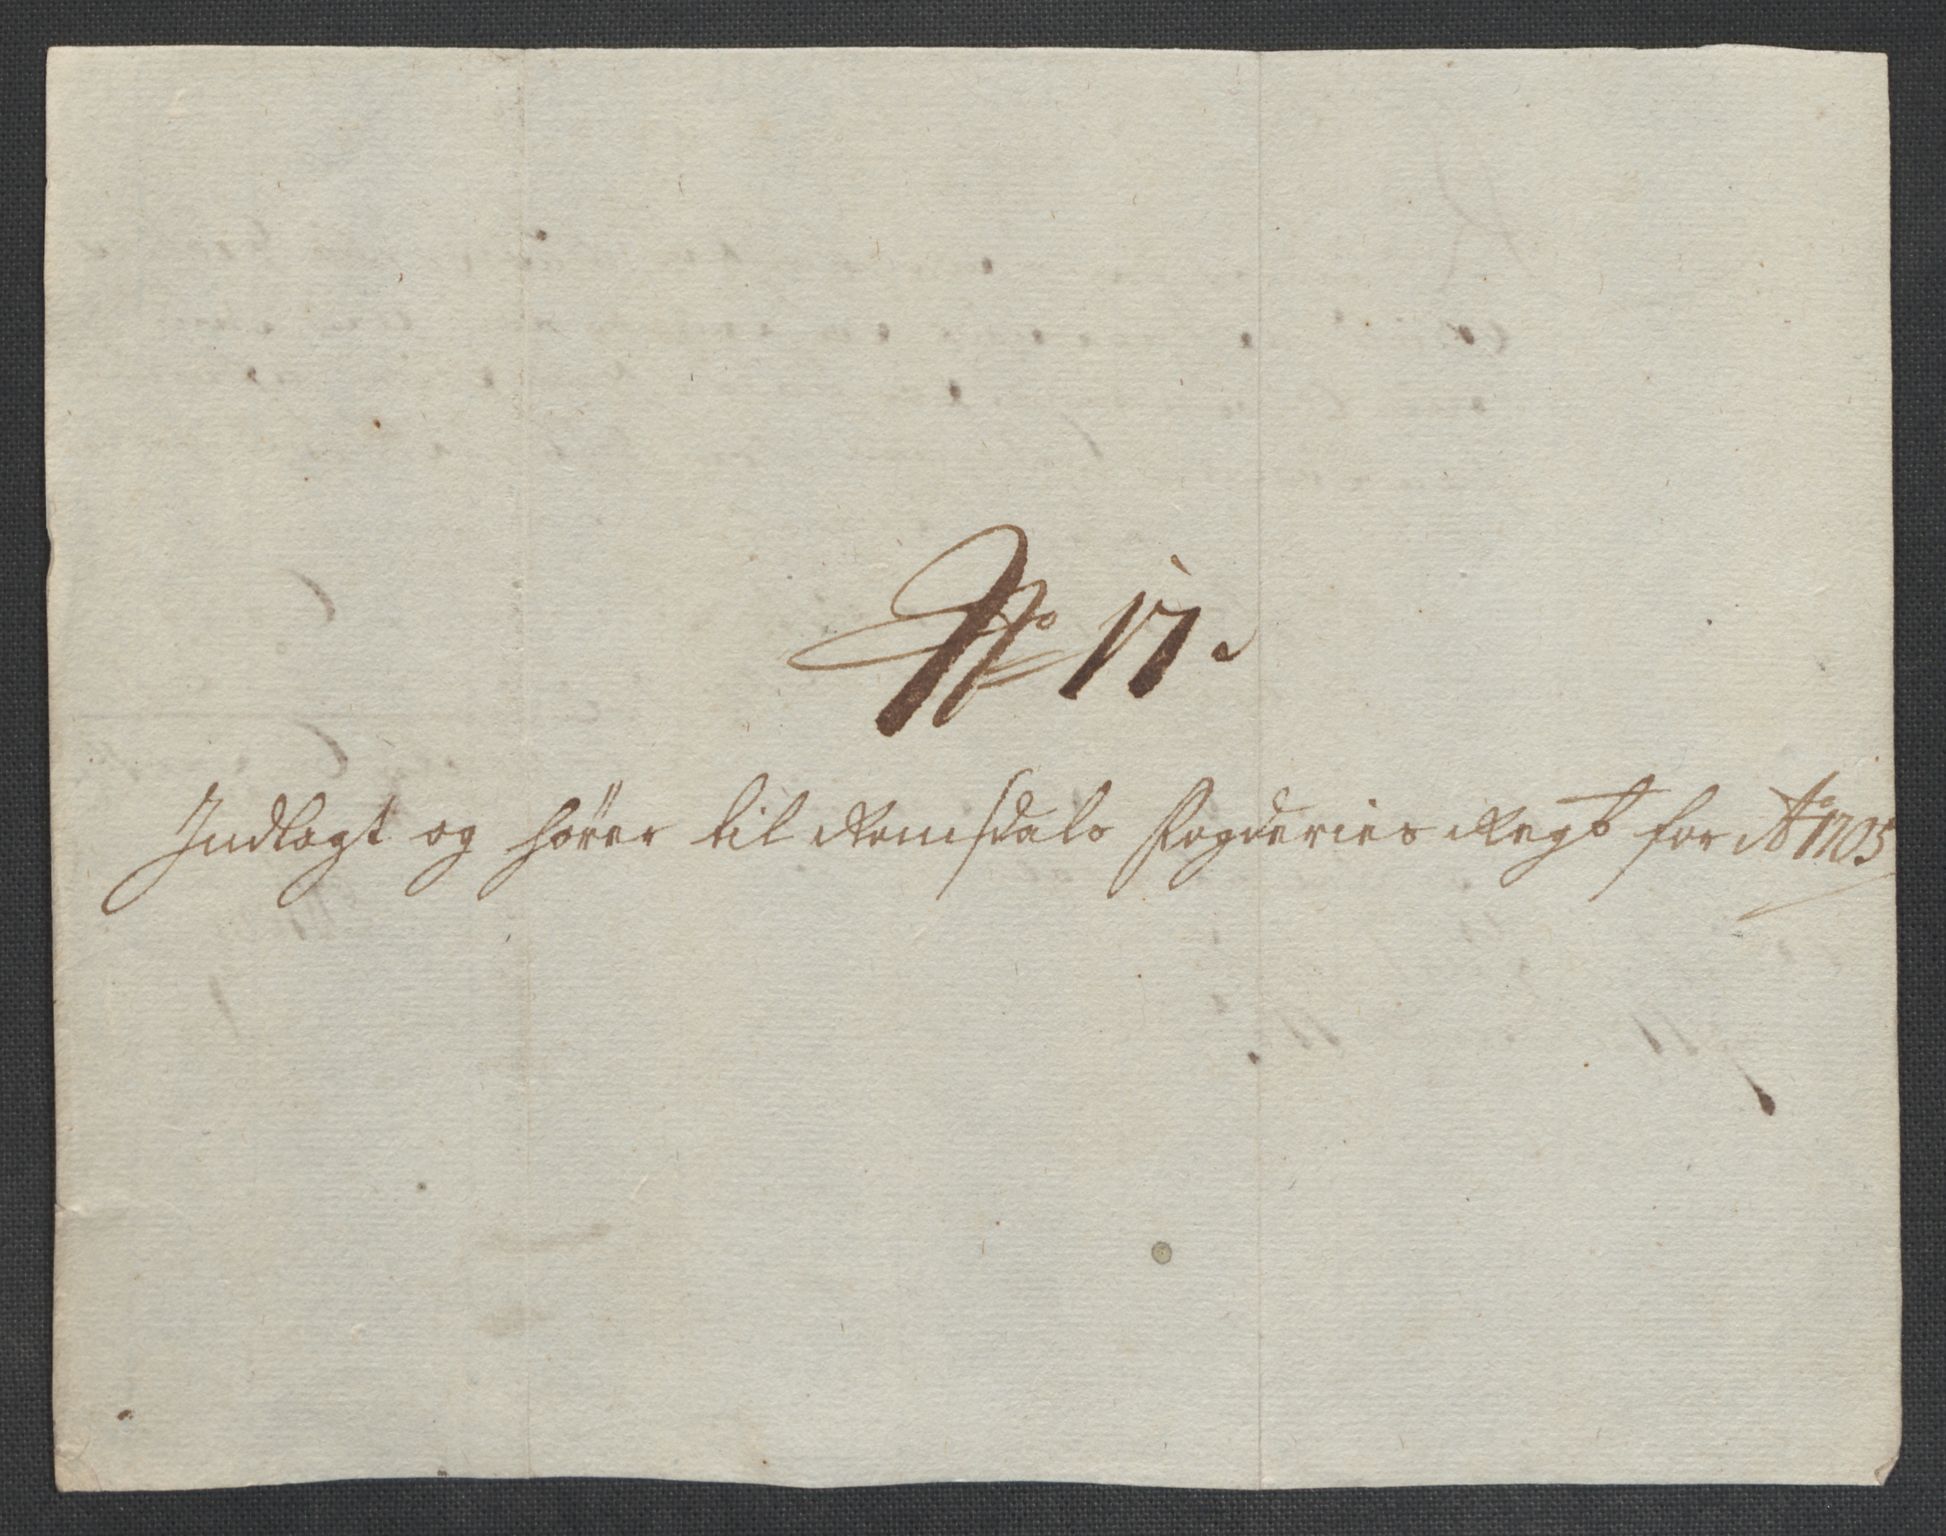 No 17.
Indlagt og hører til Romsdals Fogderies Regt for Ao 1705